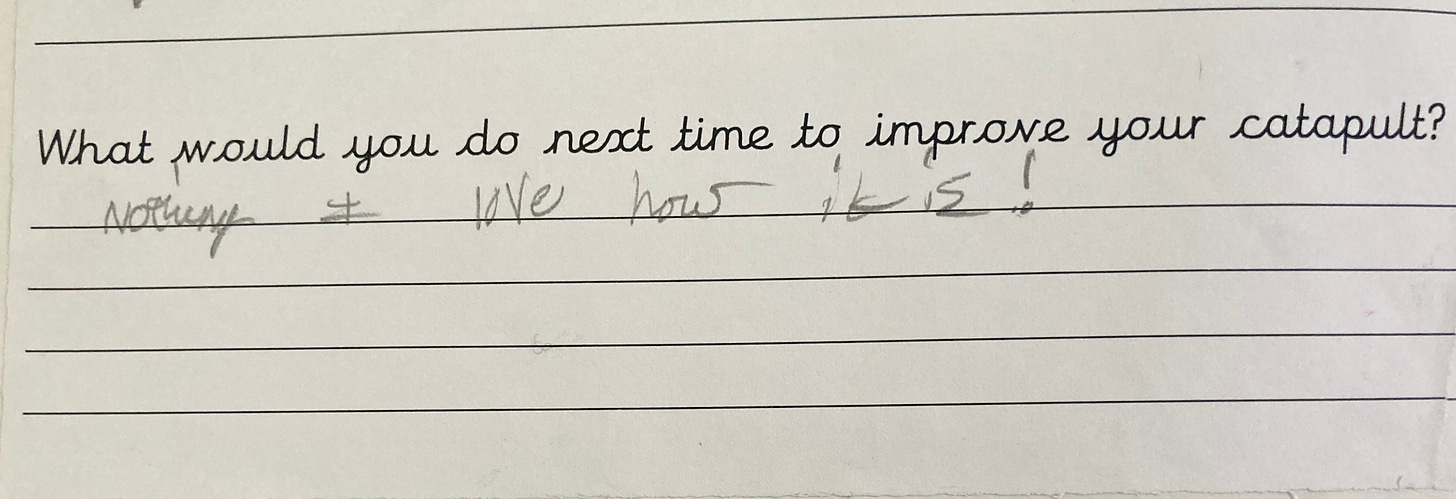 What would you do next time to improve your catapult?
Nothing I love how it is!